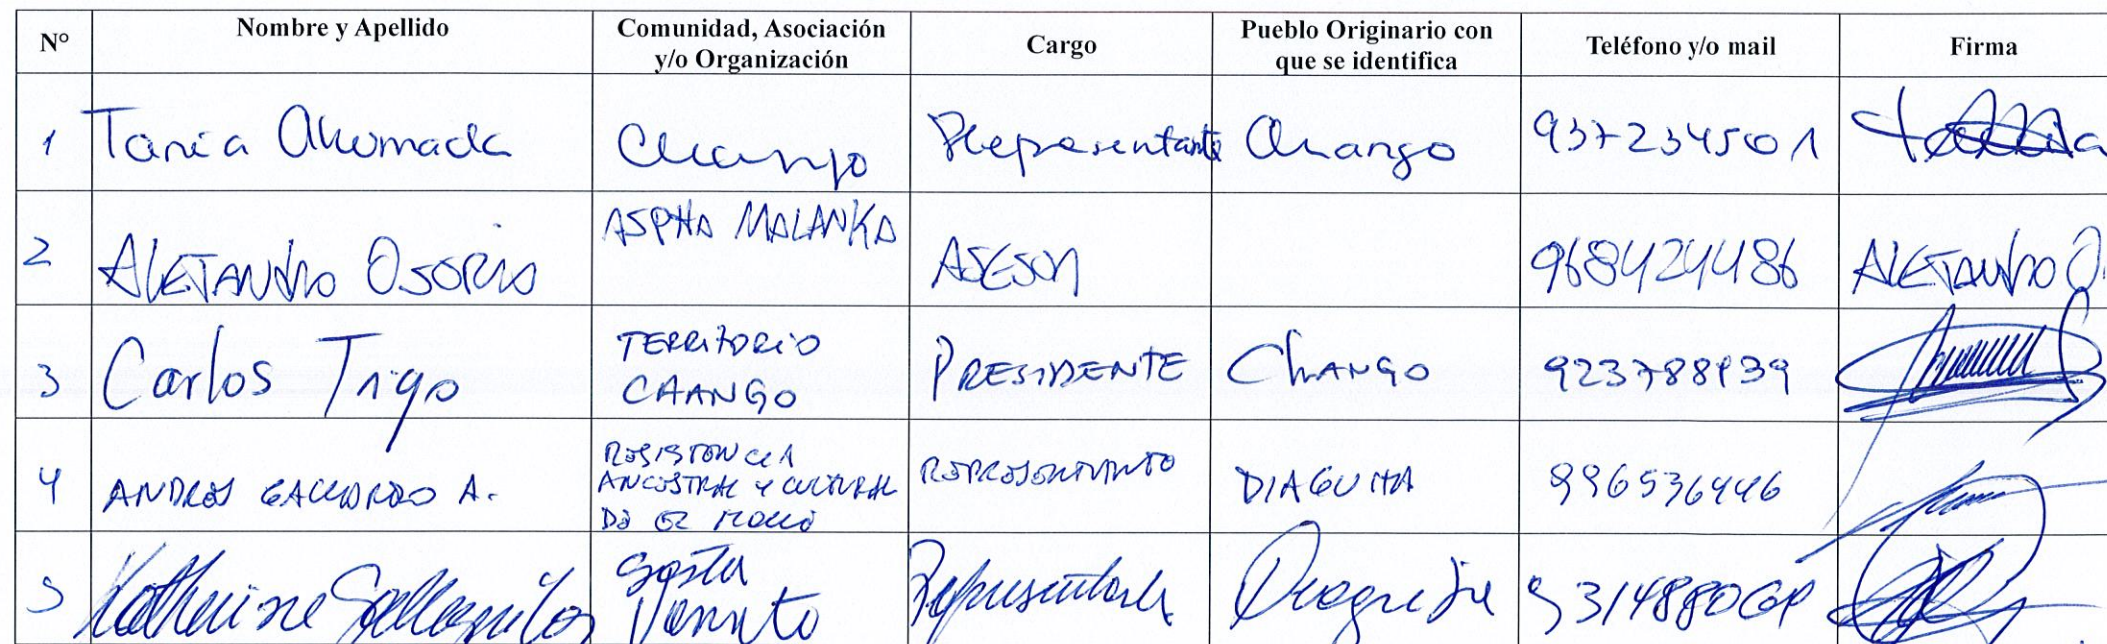 N° Nombre y Apellido Comunidad, Asociación y/o Organización Cargo Pueblo Originario con que se identifica Teléfono y/o mail Firma
1 Tania Ahumada Chango Representante Chango 937234501
2 ALEJANDRO OSORIO ASPHA MALANKA ASESOR 968424486 ALEJANDRO O.
3 Carlos Trigo TERRITORIO CHANGO PRESIDENTE CHANGO
4 ANDRES GALLARDO A. RESISTENCIA ANCESTRAL Y CULTURAL DE EL MOLLE REPRESENTANTE DIAGUITA 996536446
5 Katherine Representante Diaguita